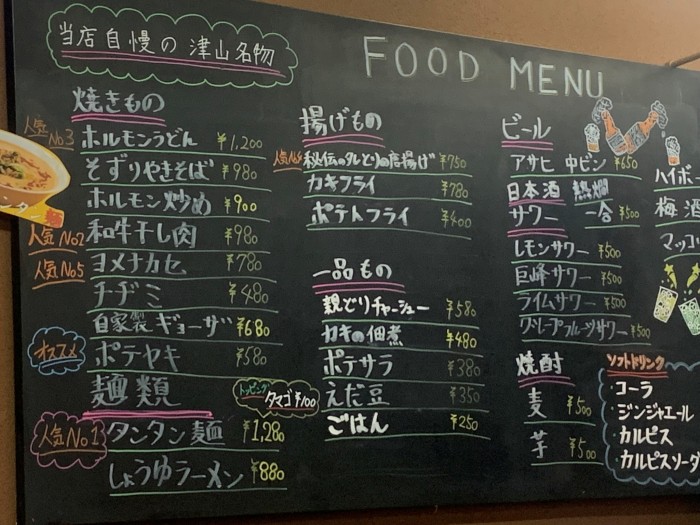 当店自慢の 津山名物
FOOD MENU
焼きもの
人気No3 ホルモンうどん ¥1,200
そずりやきそば ¥980
ホルモン炒め ¥900
人気No2 和牛干し肉 ¥980
人気No5 ヨメナカセ ¥780
チヂミ ¥480
自家製ギョーザ ¥680
オススメ ポテヤキ ¥580
麺類
トッピング タマゴ¥100
人気No1 タンタン麺 ¥1,280
しょうゆラーメン ¥880
揚げもの
秘伝のタレどりの唐揚げ ¥750
カキフライ ¥780
ポテトフライ ¥400
一品もの
親どりチャーシュー ¥580
カキの佃煮 ¥480
ポテサラ ¥380
えだ豆 ¥350
ごはん ¥250
ビール
アサヒ 中ビン ¥650
日本酒 熱燗
一合 ¥500
サワー
レモンサワー ¥500
巨峰サワー ¥500
ライムサワー ¥500
グレープフルーツサワー ¥500
焼酎
麦 ¥500
芋 ¥500
ハイボー
梅酒
マッコ
ソフトドリンク
・コーラ
・ジンジャエール
・カルピス
・カルピスソーダ